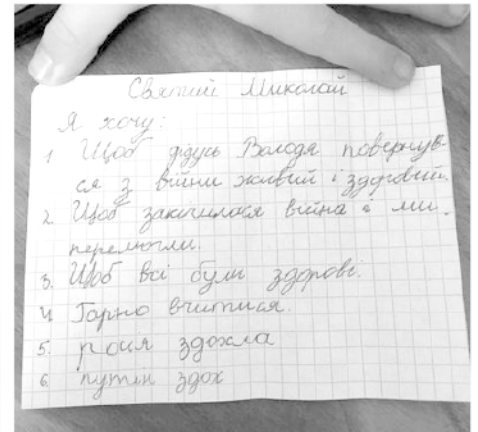 Святий Миколай
Я хочу:
1. Щоб дідусь Володя повернув-
ся з війни живий і здоровий.
2. Щоб закінчилася війна і ми
перемогли.
3. Щоб всі були здорові.
4. Гарно вчитися.
5. росія здохла
6. путін здох